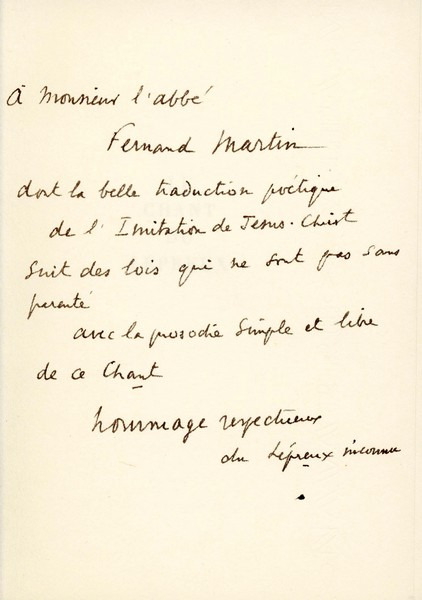 À Monsieur l'abbé
Fernand Martin
dont la belle traduction poétique
de l'Imitation de Jésus-Christ
suit des lois qui ne sont pas sans
parenté
avec la prosodie simple et libre
de ce Chant
hommage respectueux
du Lépreux inconnu